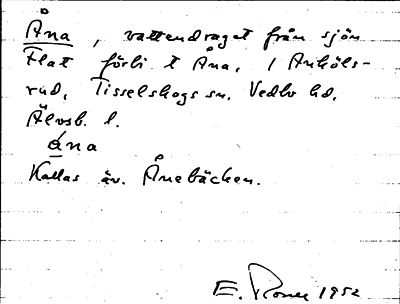 Åna, vattendraget från sjön
Flat förbi t Åna, 1 Anköls-
rud, Tisselskogs sn. Vedbo hd.
Älvsb. l.
ána
Kallas äv. Ånebäcken.
E. 1952